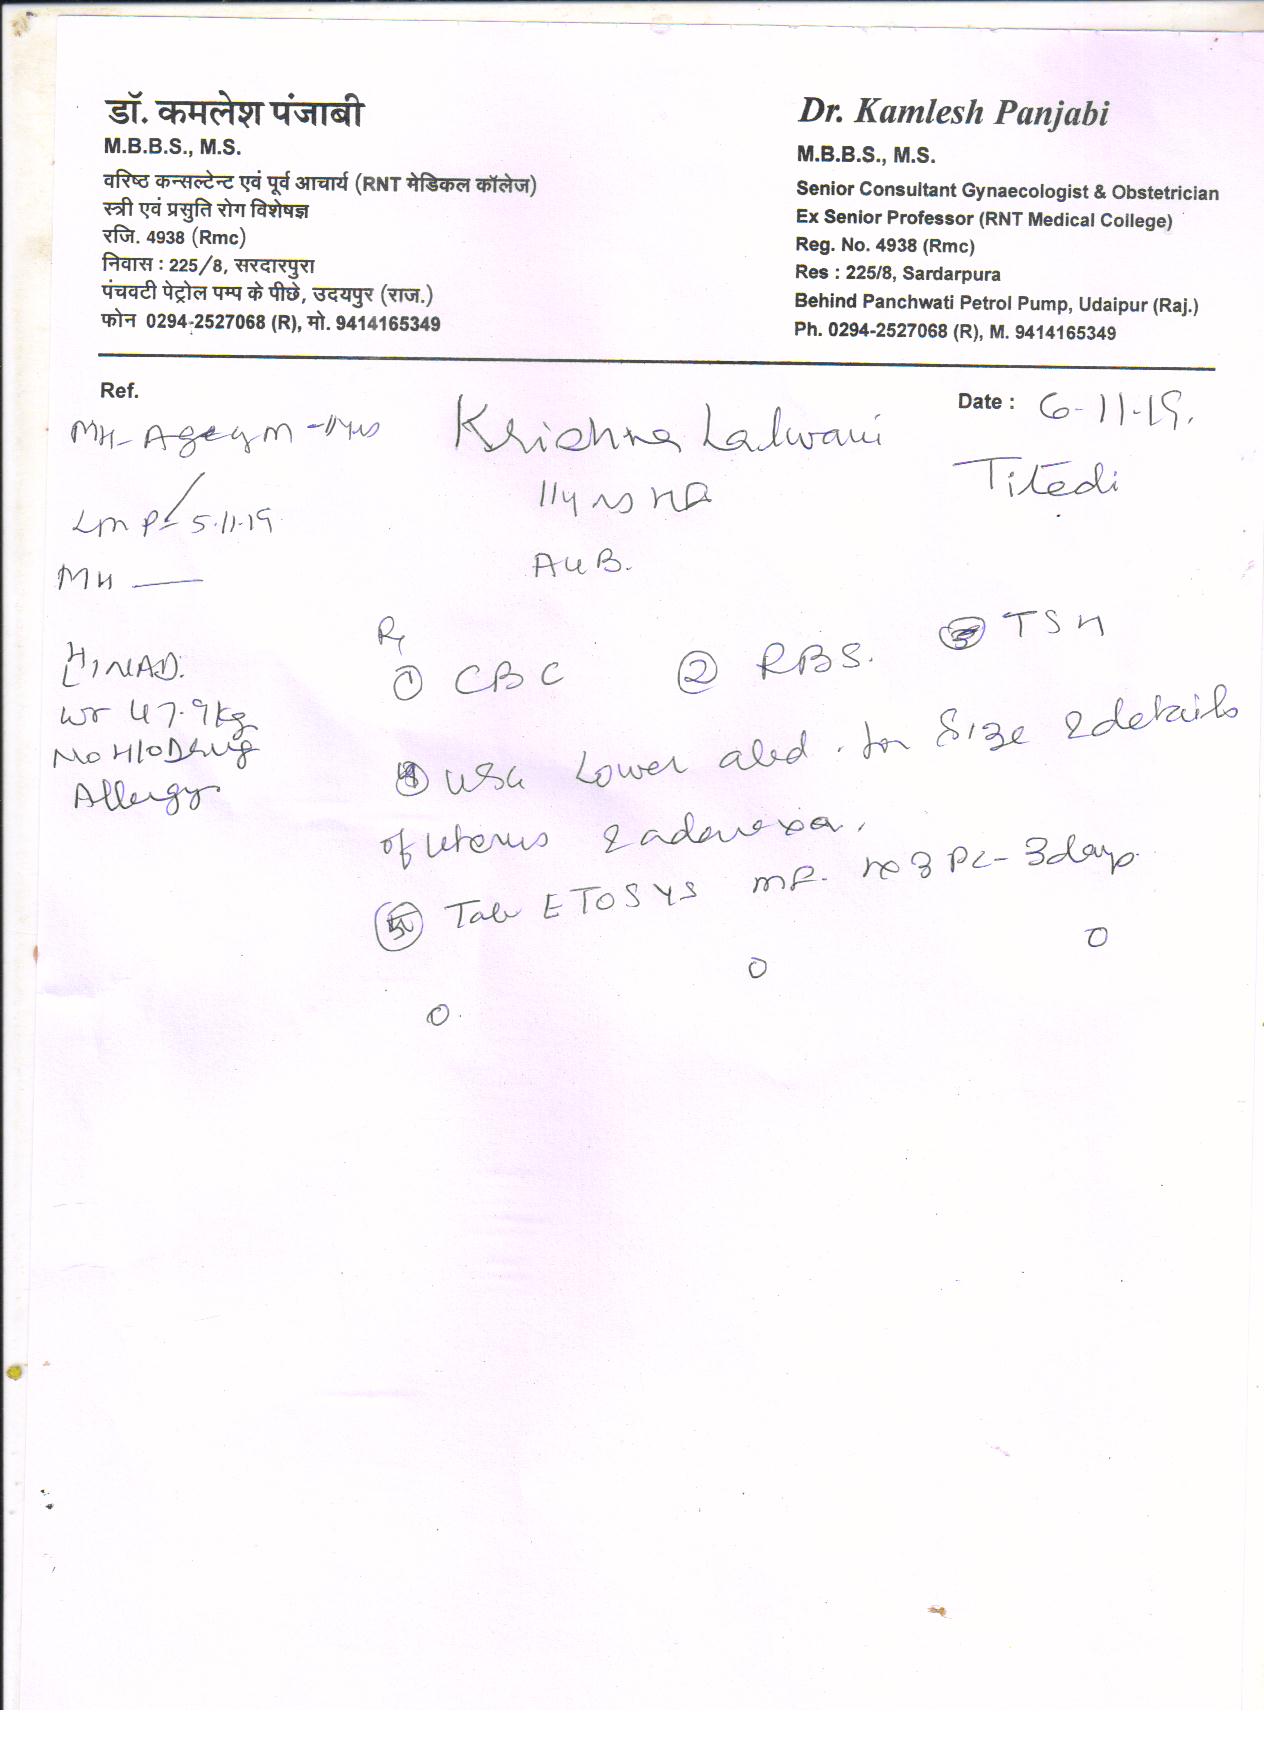 डॉ. कमलेश पंजाबी
M.B.B.S., M.S.
वरिष्ठ कन्सल्टेन्ट एवं पूर्व आचार्य (RNT मेडिकल कॉलेज)
स्त्री एवं प्रसुति रोग विशेषज्ञ
रजि. 4938 (Rmc)
निवास : 225/8, सरदारपुरा
पंचवटी पेट्रोल पम्प के पीछे, उदयपुर (राज.)
फोन 0294-2527068 (R), मो. 9414165349
Dr. Kamlesh Panjabi
M.B.B.S., M.S.
Senior Consultant Gynaecologist & Obstetrician
Ex Senior Professor (RNT Medical College)
Reg. No. 4938 (Rmc)
Res : 225/8, Sardarpura
Behind Panchwati Petrol Pump, Udaipur (Raj.)
Ph. 0294-2527068 (R), M. 9414165349
Ref.
Date : 6-11-19.
MH- Age of M - 11yrs
Krishna Lalwani
Titedi
11yrs
LMP- 5.11.19
AUB.
MH —
Rx
① CBC ② RBS. ③ TSH
NAD.
wt 47.9kg
No H/o Drug
Allergy
④ USG Lower abd. for Size & details
of uterus & adenexa.
⑤ Tab ETOSYS MF. x 3 PC - 3days.
0 0 0